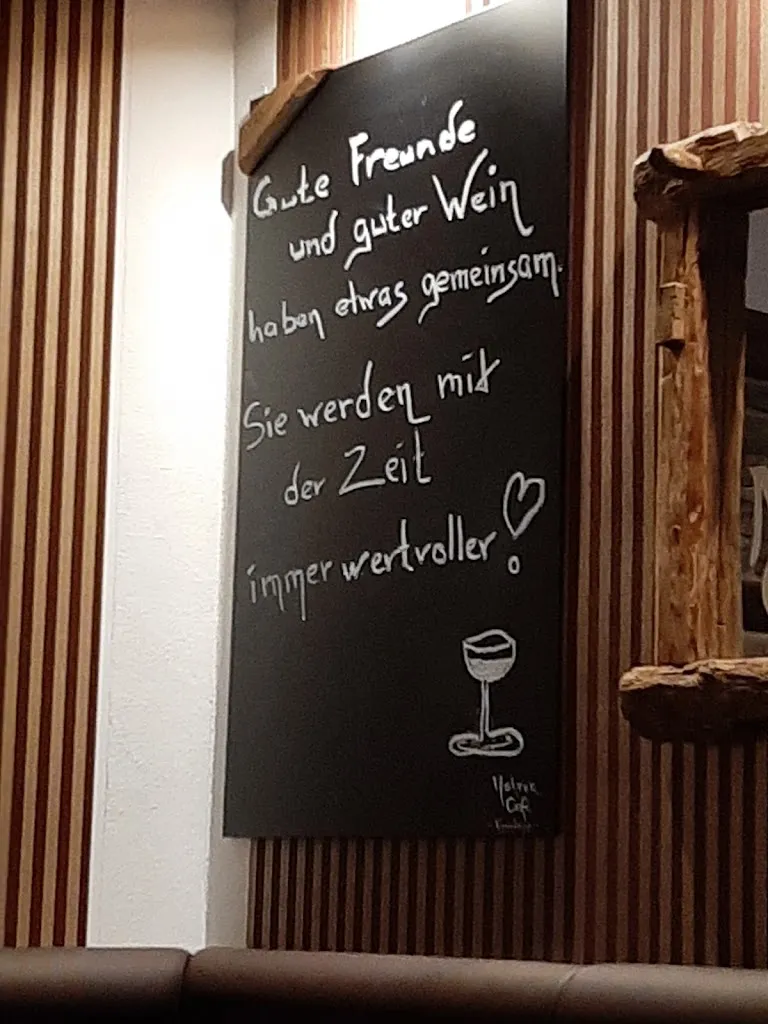 Gute Freunde
und guter Wein
haben etwas gemeinsam.
Sie werden mit
der Zeit
immer wertvoller!
Café